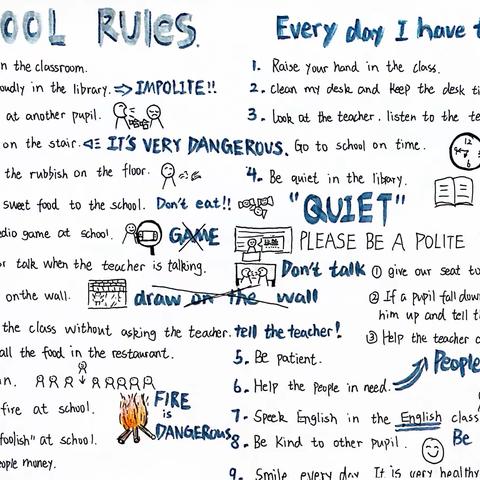 OOL RULES.
n the classroom.
oudly in the library. ⇒ IMPOLITE!!
at another pupil.
on the stair. IT'S VERY DANGEROUS.
the rubbish on the floor.
sweet food to the school. Don't eat!!
edio game at school. GAME
r talk when the teacher is talking.
on the wall. draw on the wall
the class without asking the teacher. tell the teacher!
all the food in the restaurant.
n.
fire at school. FIRE is DANGEROUS
foolish" at school.
eople money.
Every day I have t
1. Raise your hand in the class.
2. clean my desk and keep the desk ti
3. Look at the teacher, listen to the te
Go to school on time.
12
4. Be quiet in the library.
"QUIET"
PLEASE BE A POLITE
Don't talk ① give our seat to
② If a pupil fall down
him up and tell t
③ Help the teacher c
5. Be patient.
People
6. Help the people in need.
7. Speek English in the English class
8. Be Kind to other pupil. Be
9. Smile every day It is very healthy